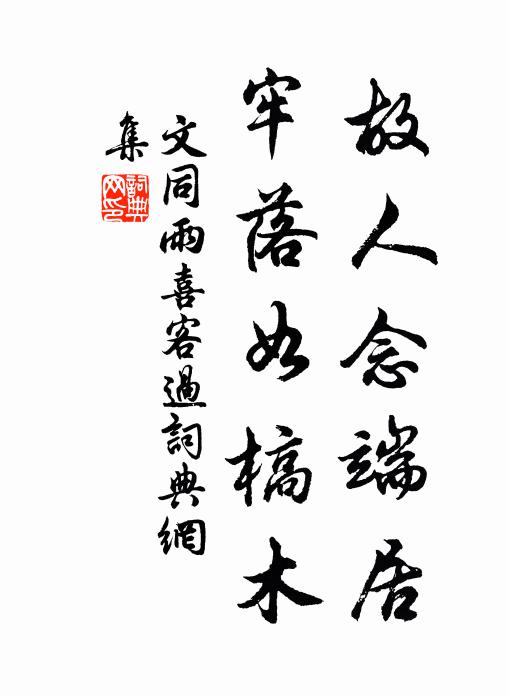 故人念端居
牢落如槁木
文同雨喜客過詞典網
集
詞典
网印